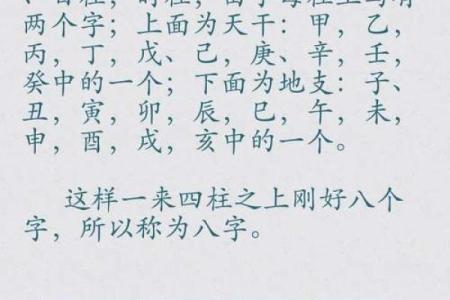 柱，时柱，由于每柱上有
两个字；上面为天干：甲，乙，
丙，丁，戊、己，庚、辛，壬，
癸中的一个；下面为地支：子、
丑，寅，卯，辰，巳，午，未，
申，酉，戌，亥中的一个。
这样一来四柱之上刚好八个
字，所以称为八字。